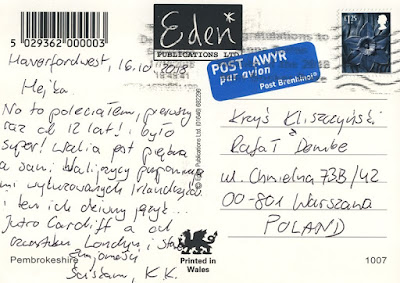 5 029362 000003
Eden*
PUBLICATIONS LTD
POST AWYR
par avion
Post Brenhinol
£1.25
Haverfordwest, 16.10.2018
Hejka
No to poleciałem, pierwszy
raz od 12 lat! i było
super! Walia jest piękna
a sami Walijczycy
mi wyluzowanych
i ten ich dziwny język...
Jutro Cardiff a od
czwartku Londyn i
Ściskam, K.K.
Krzyś Kliszczyński
Rafał Dembe
ul. Chmielna 73B/42
00-801 Warszawa
POLAND
Eden Publications Ltd (01646)
Pembrokeshire
Printed in
Wales
1007